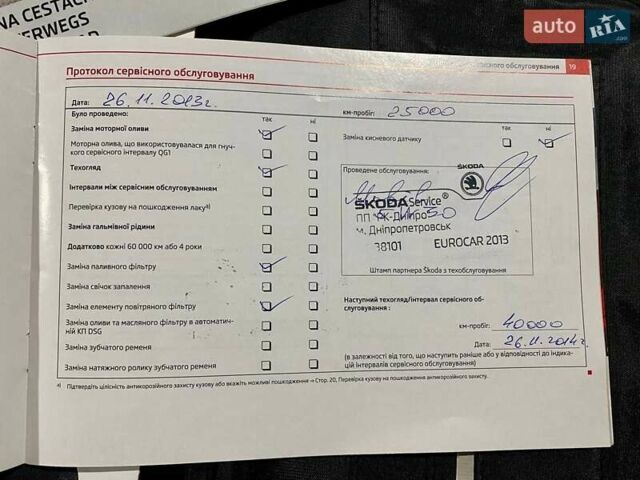 NA CESTÁCH
ERWEGS
auto RIA
.com
сервісного обслуговування 19
Протокол сервісного обслуговування
Дата: 26.11.2013г. км-пробіг: 25000
Було проведено: так ні
так ні
Заміна моторної оливи
Заміна кисневого датчику
Моторна олива, що використовувалася для гнуч-
кого сервісного інтервалу QG1
Техогляд
Інтервали між сервісним обслуговуванням
Перевірка кузову на пошкодження лакуª⁾
Заміна гальмівної рідини
Додатково кожні 60 000 км або 4 роки
Заміна паливного фільтру
Заміна свічок запалення
Заміна елементу повітряного фільтру
Заміна оливи та масляного фільтру в автоматич-
ній КП DSG
Заміна зубчатого ременя
Заміна натяжного ролику зубчатого ременя
Проведене обслуговування:
ŠKODA
ŠKODA Service®
м. Дніпропетровськ
38101 EUROCAR 2013
Штамп партнера Škoda з техобслуговування
Наступний техогляд/інтервал сервісного об-
слуговування :
км-пробіг: 40000
Дата: 26.11.2014г.
(в залежності від того, що наступить раніше або у відповідності до індика-
ції інтервалів сервісного обслуговування)
ª⁾ Підтвердіть цілісність антикорозійного захисту кузову або вкажіть можливі пошкодження ⇒ Стор. 20, Перевірка кузову на пошкодження антикорозійного захисту.